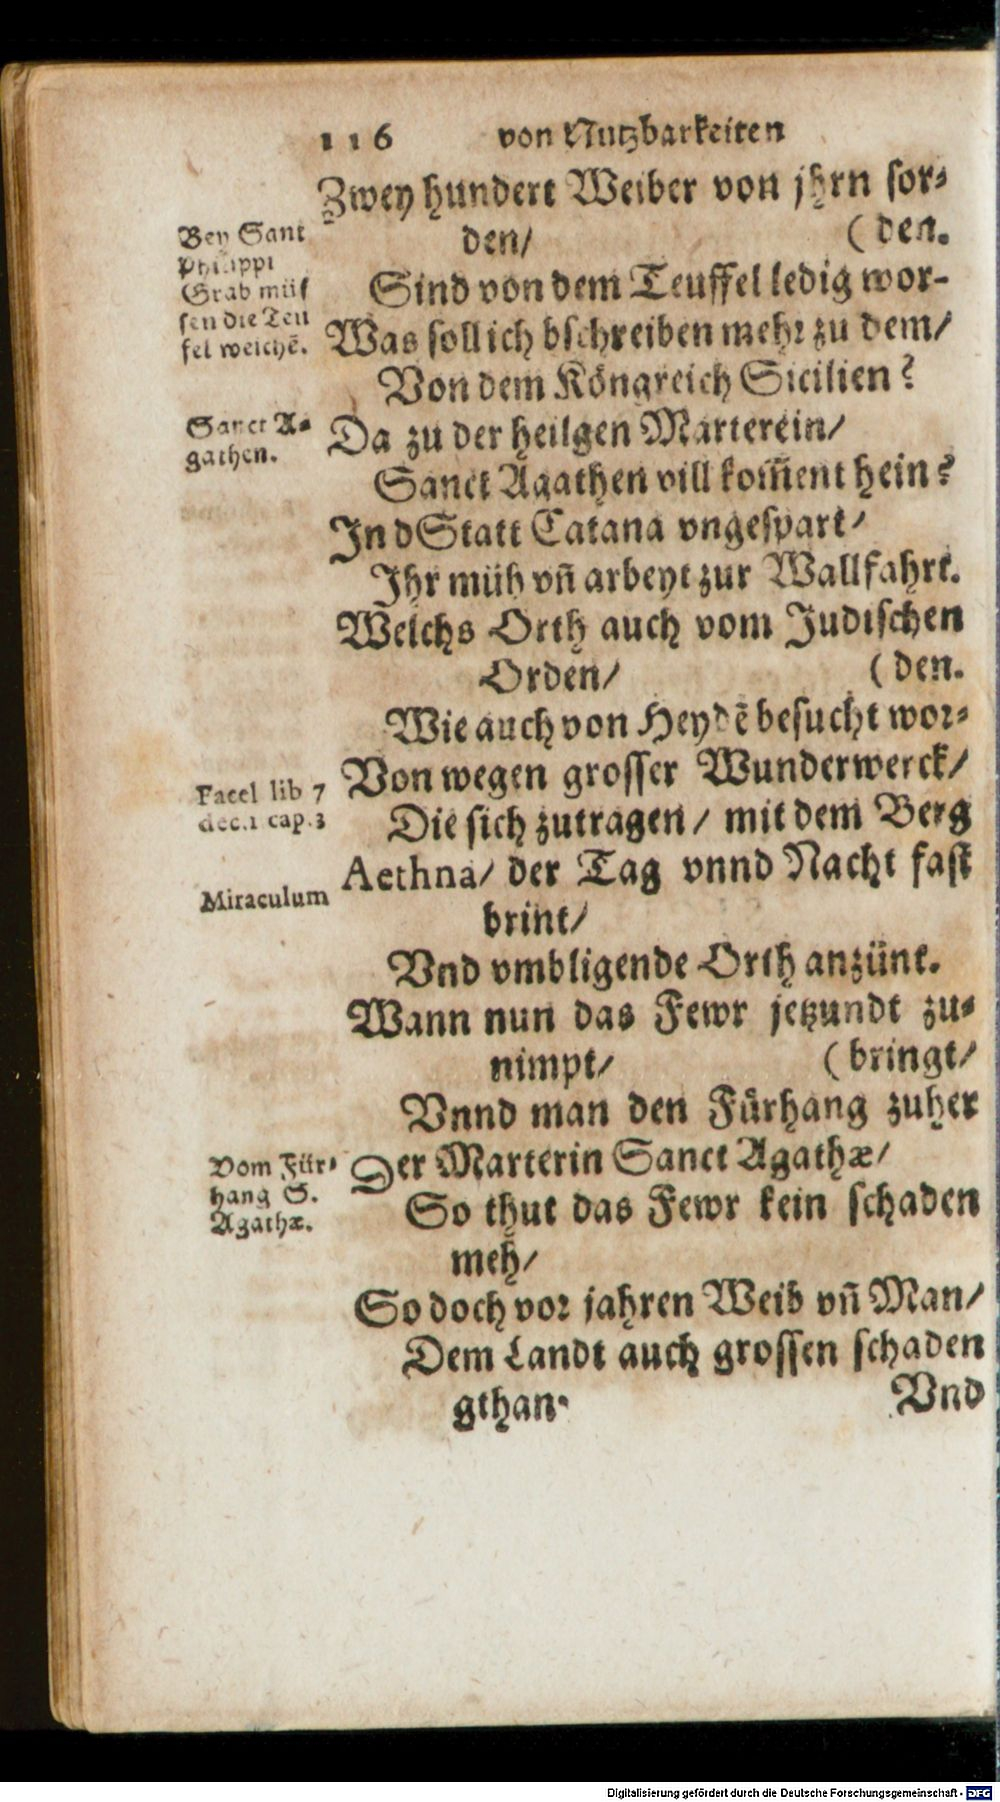 116 von Nutzbarkeiten
Zwey hundert Weiber von jhrn sor-
den/ (den.
Sind von dem Teuffel ledig wor-
Was soll ich bschreiben mehr zu dem/
Von dem Köngreich Sicilien?
Da zu der heilgen Marterein/
Sanct Agathen vill kom̃ent hein?
In dStatt Catana vngespart/
Ihr müh vñ arbeyt zur Wallfahrt.
Welchs Orth auch vom Judischen
Orden/ (den.
Wie auch von Heydẽ besucht wor-
Von wegen grosser Wunderwerck/
Die sich zutragen/ mit dem Berg
Aethna/ der Tag vnnd Nacht fast
brint/
Vnd vmbligende Orth anzünt.
Wann nun das Fewr jetzundt zu-
nimpt/ (bringt/
Vnnd man den Fürhang zuher
Der Marterin Sanct Agathæ/
So thut das Fewr kein schaden
meh/
So doch vor jahren Weib vñ Man/
Dem Landt auch grossen schaden
gthan. Vnd
Bey Sant
Philippi
Grab müs
sen die Teu
fel weichẽ.
Sanct A-
gathen.
Facel lib 7
dec.1 cap.3
Miraculum
Vom Für-
hang S.
Agathæ.
Digitalisierung gefördert durch die Deutsche Forschungsgemeinschaft - DFG